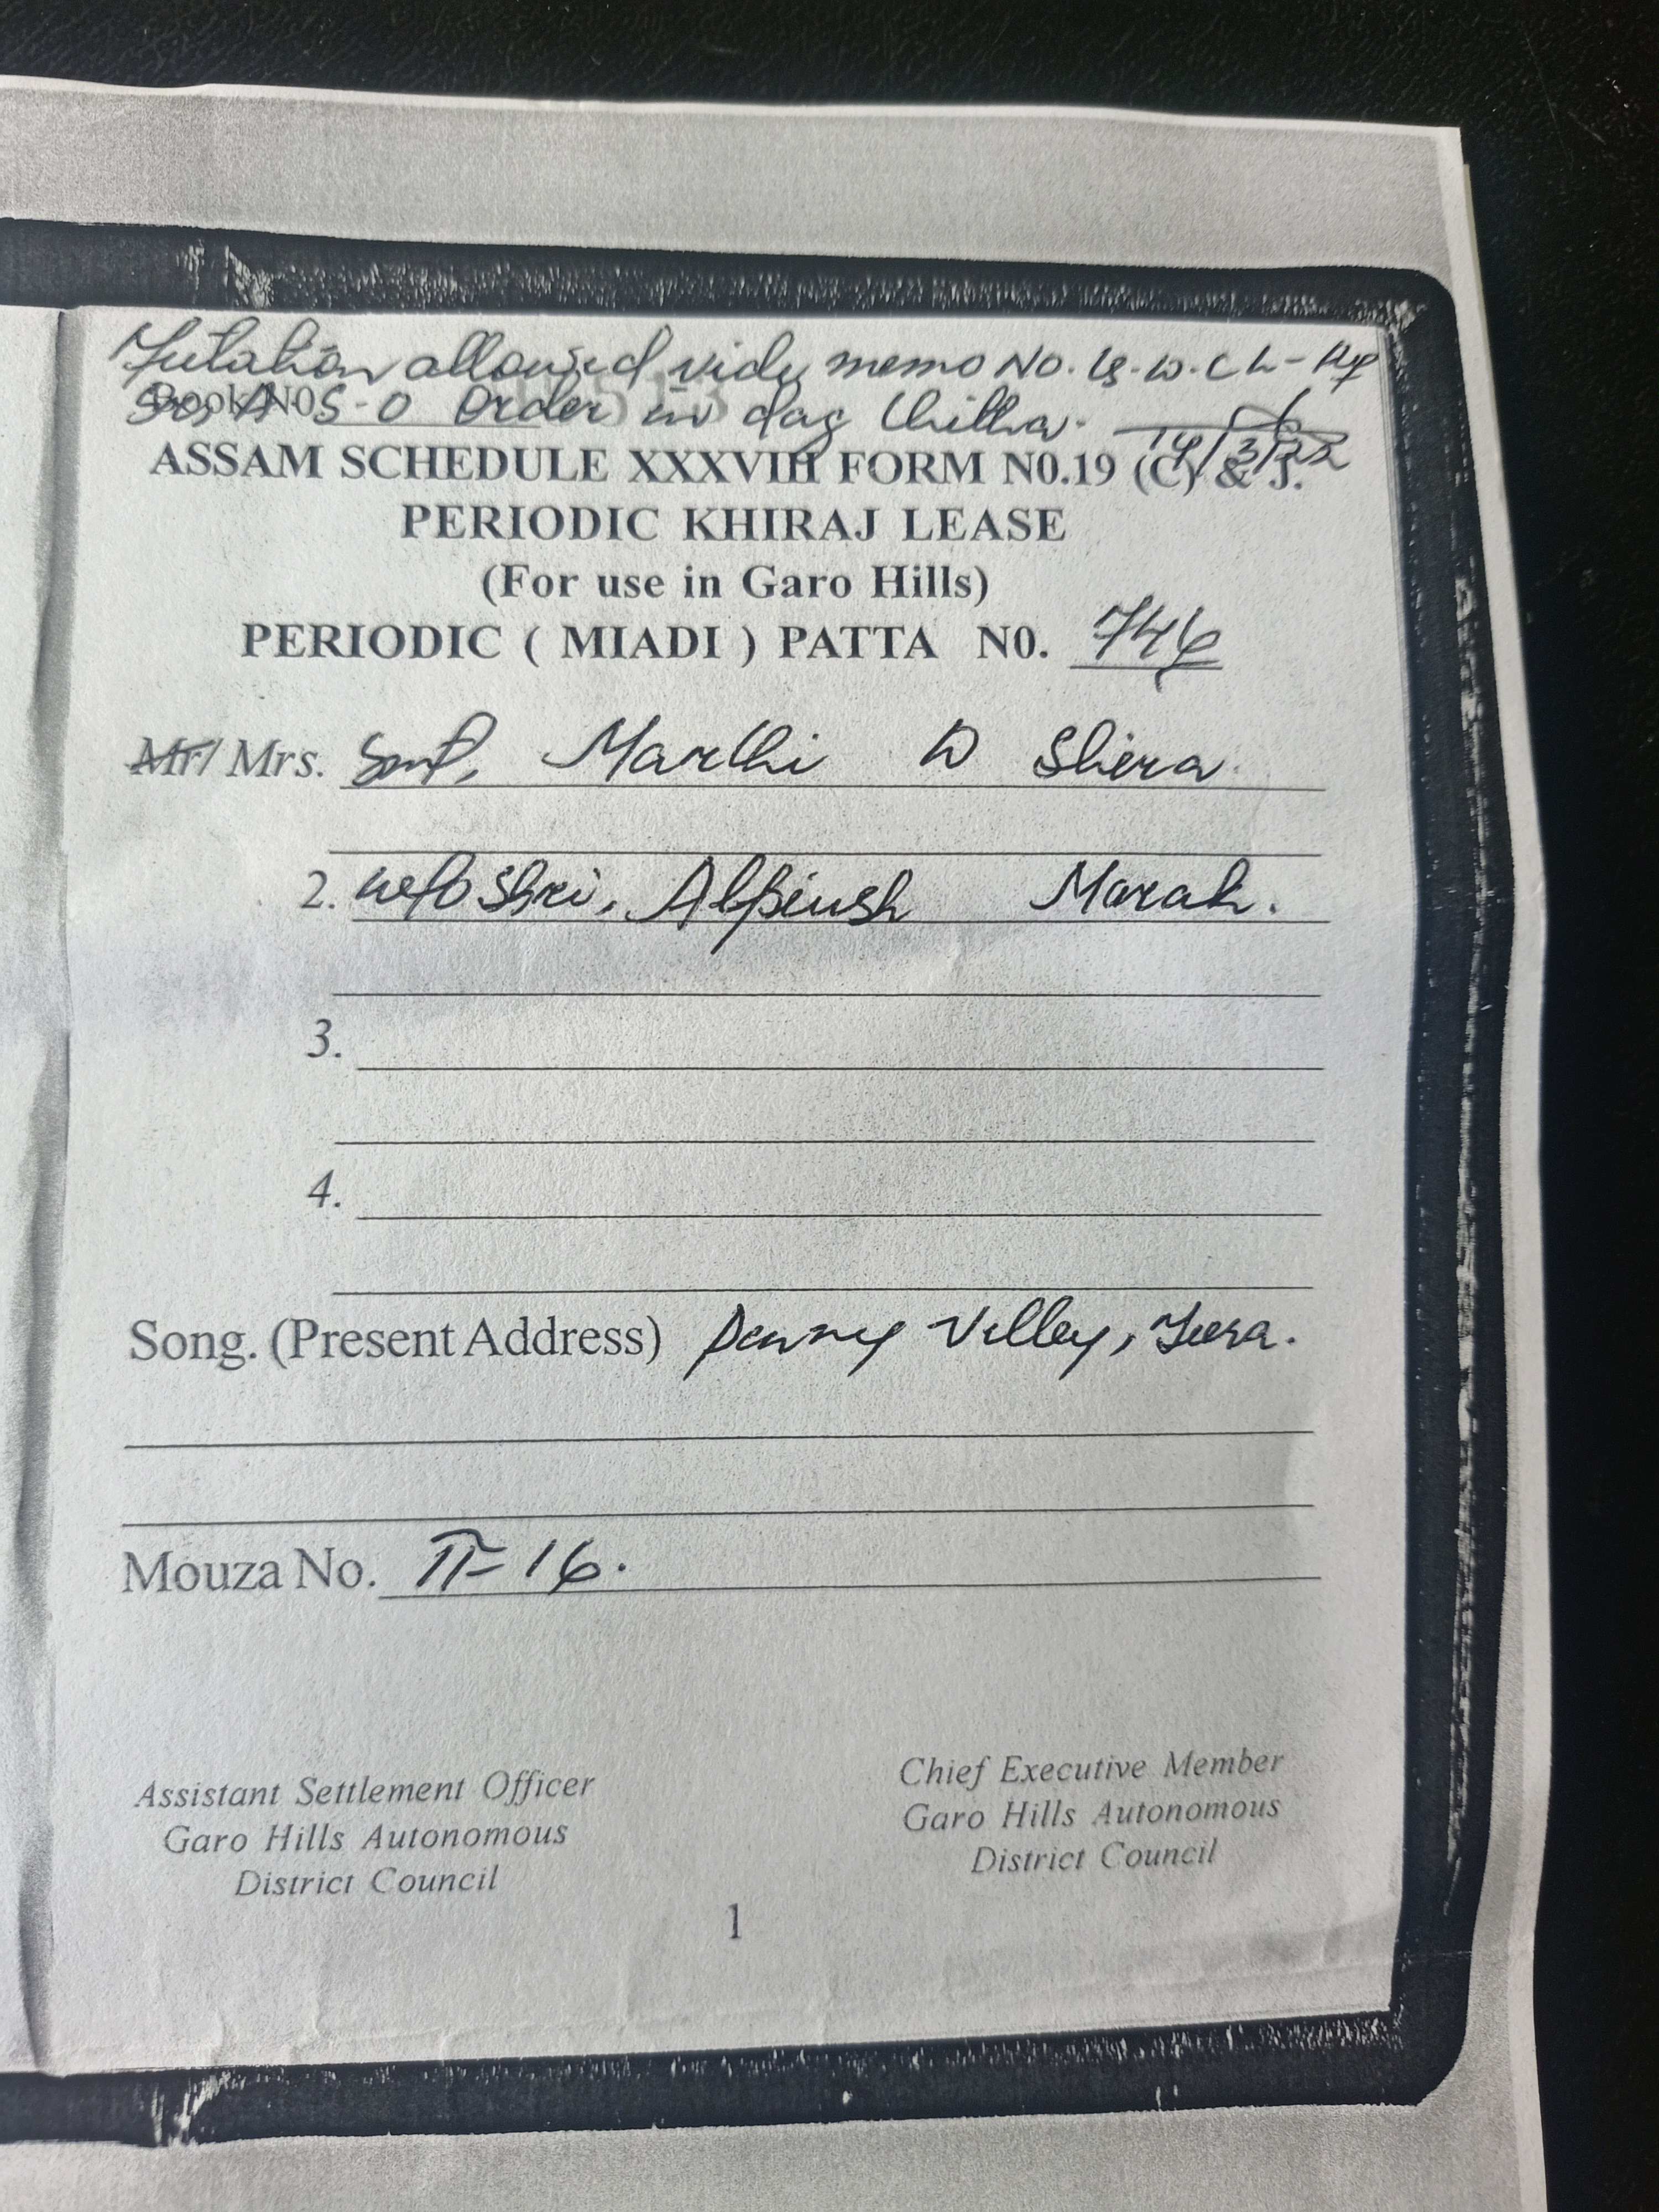 allowed vide memo No.
Book N0. A S-O Order in dag Chitha. 14/3/22
ASSAM SCHEDULE XXXVIII FORM N0.19 (C) & J.
PERIODIC KHIRAJ LEASE
(For use in Garo Hills)
PERIODIC ( MIADI ) PATTA N0. 746
Mr/ Mrs. Smt, Marthi D Shira
2. w/o Shri, Alpiush Marak.
3.
4.
Song. (Present Address) Villey, Tura.
Mouza No. II-16.
Assistant Settlement Officer
Garo Hills Autonomous
District Council
Chief Executive Member
Garo Hills Autonomous
District Council
1